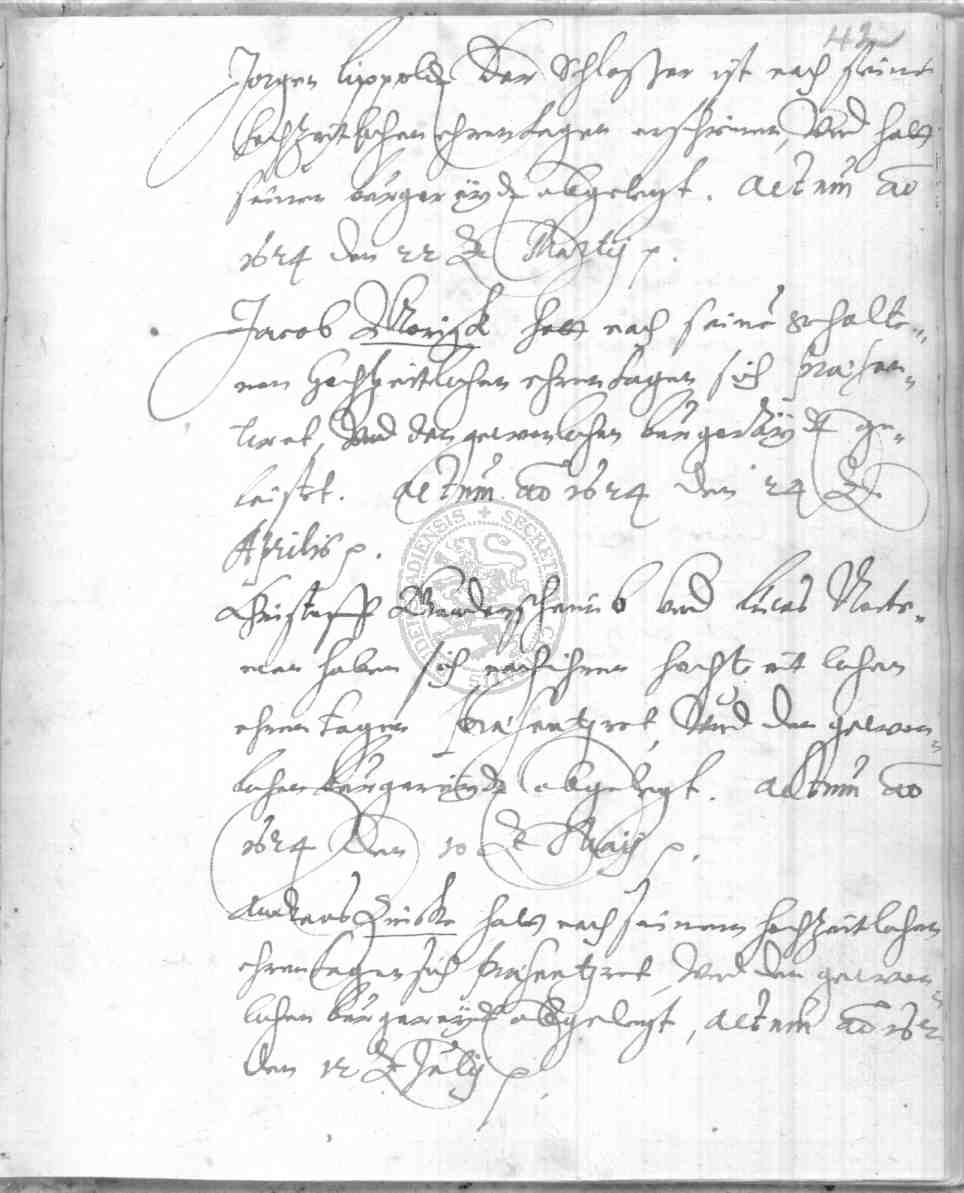 42
Jorgen Lippoldt der Schlosser ist nach seine
hochzeitlichen ehrentagen erschienen, vnd hatt
seinen bürger eÿdt abgelegt. Actum ao
1624 den 22 Martÿ p.
Jacob hatt nach seinē gehalte-
nen hochzeitlichen ehren tagen sich præsen-
tiret, vnd den gewonlichen bürger eÿdt ge-
leistet. Actum ao 1624 den 24
Aprilis p.
Christoff vnd Lucas
man haben sich nach ihren hochzeitlichen
ehren tagen præsentiret, vnd den gewon-
lichen bürger eÿdt abgelegt. Actum ao
1624 den 10 Maÿ p.
Andreas hatt nach seinem hochzeitlichen
ehren tagen sich præsentiret, vnd den gewon
lichen bürger eÿdt abgelegt, Actum ao
den 12 Julÿ p.